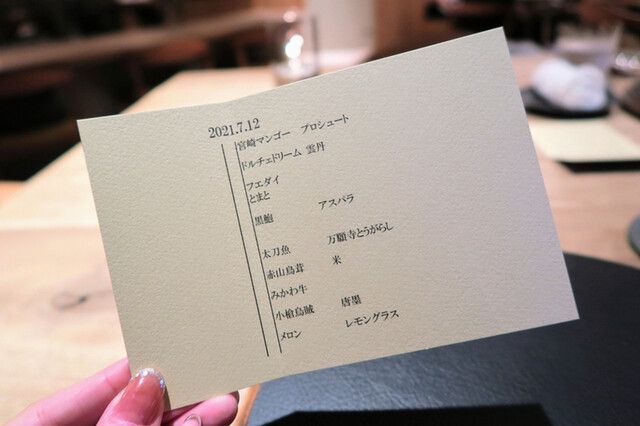 2021.7.12
宮崎マンゴー プロシュート
ドルチェドリーム 雲丹
フエダイ
とまと
黒鮑 アスパラ
太刀魚 万願寺とうがらし
赤山鳥茸 米
みかわ牛
小槍烏賊 唐墨
メロン レモングラス